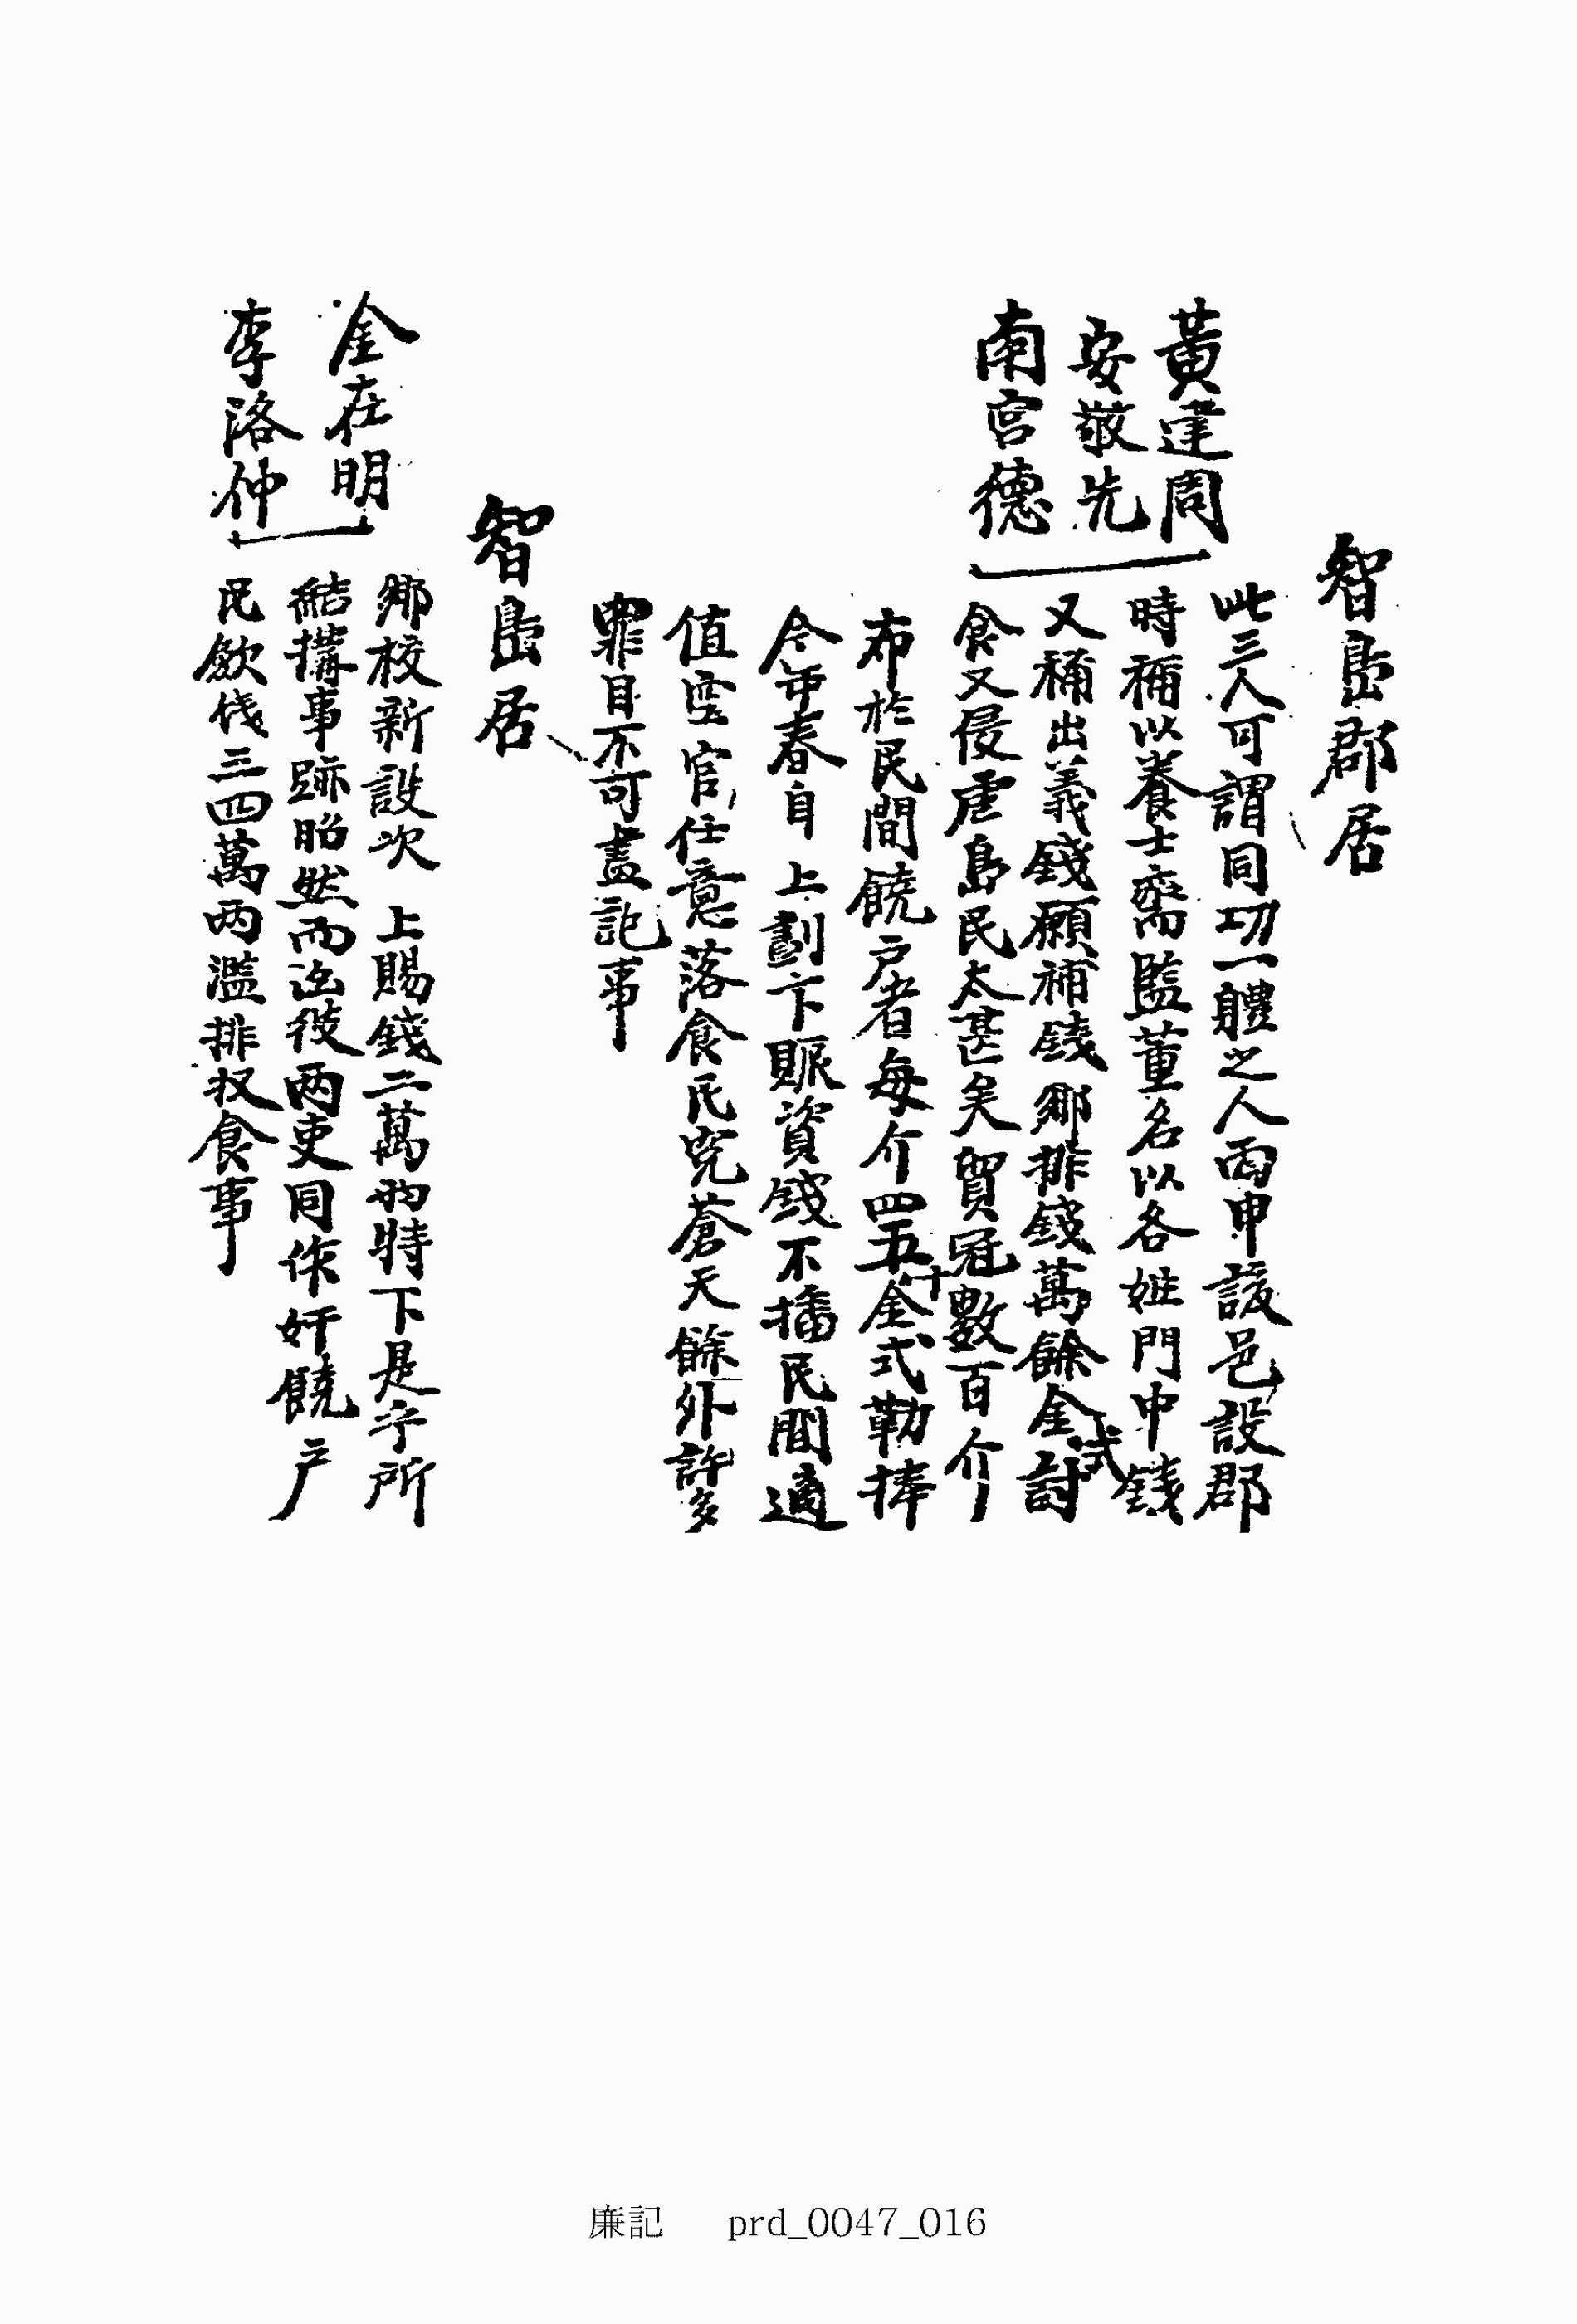 智島郡居
黃達周
安敬先
南宮德
此三人可謂同功一體之人丙申設邑設郡
時稱以養士齋監董名以各姓門中錢
又稱出義錢願補錢鄉排錢萬餘金式討
食又侵虐島民太甚矣貿冠數百介
布於民間饒戶者每介四五十金式勒捧
今年春自 上劃下賑資錢不播民間適
值空官任意落食民冤蒼天餘外許多
罪目不可盡記事
智島居
金在明
李洛仲
鄉校新設次 上賜錢二萬兩特下是乎所
結搆事跡昭然而這彼兩吏同作奸饒戶
民歛錢三四萬兩濫排收食事
廉記 prd_0047_016